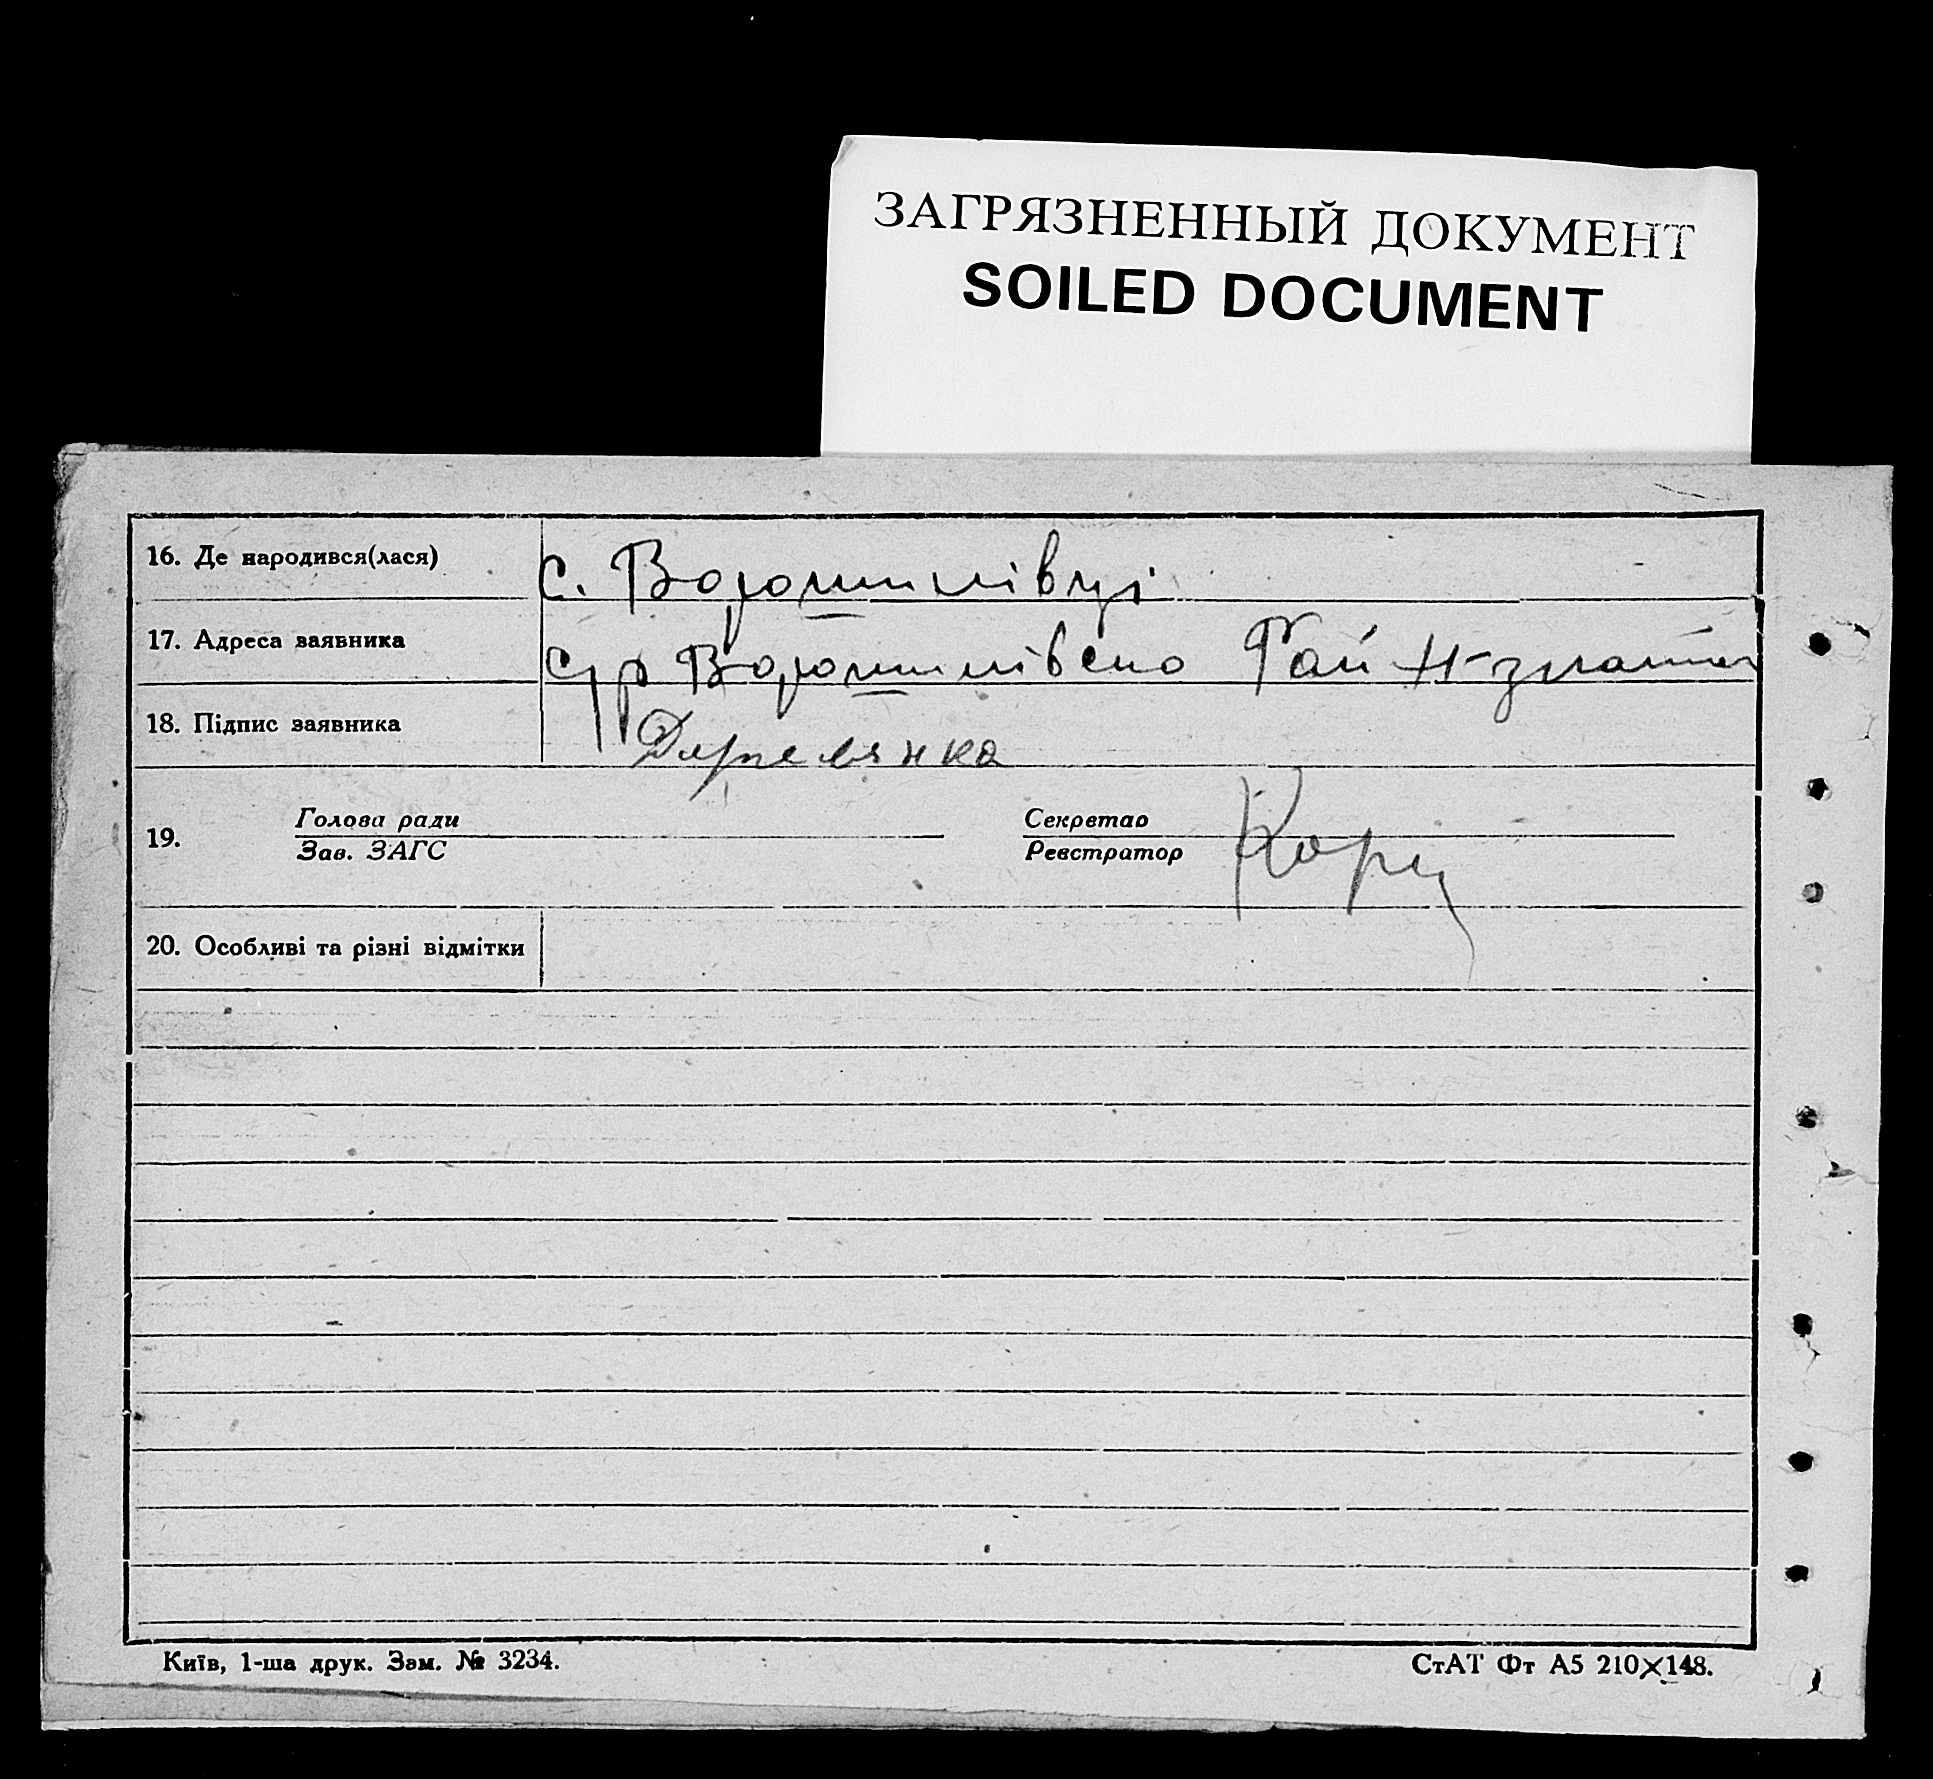 ЗАГРЯЗНЕННЫЙ ДОКУМЕНТ
SOILED DOCUMENT
16. Де народився(лася) с. Ворошилівці
17. Адреса заявника с/р Ворошилівено Рай
18. Підпис заявника
19. Голова ради Секретао
Зав. ЗАГС Реєстратор
20. Особливі та різні відмітки
Київ, 1-ша друк. Зам. № 3234.
СтАТ Фт А5 210×148.